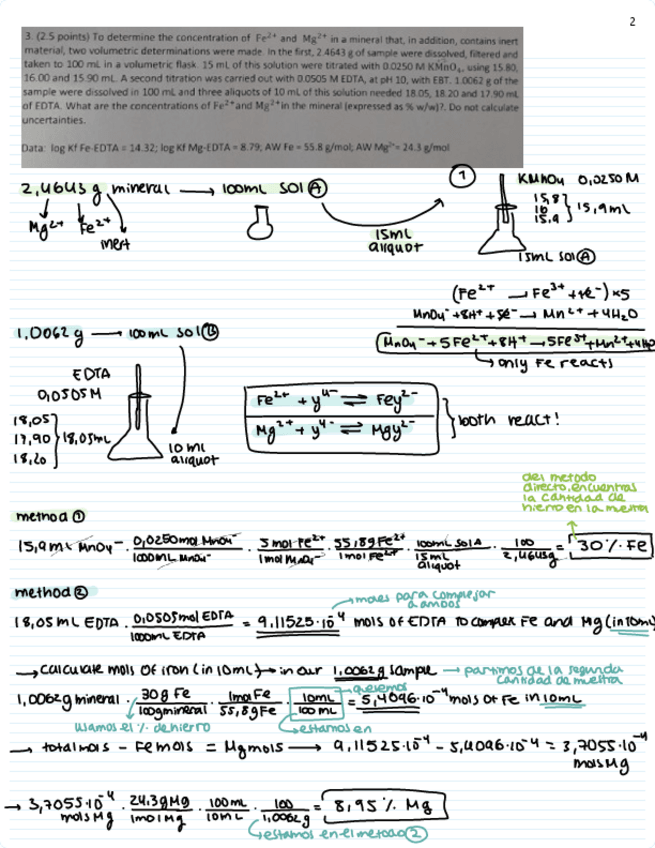 2
3. (2.5 points) To determine the concentration of Fe²⁺ and Mg²⁺ in a mineral that, in addition, contains inert
material, two volumetric determinations were made. In the first, 2.4643 g of sample were dissolved, filtered and
taken to 100 mL in a volumetric flask. 15 mL of this solution were titrated with 0.0250 M KMnO₄, using 15.80,
16.00 and 15.90 mL. A second titration was carried out with 0.0505 M EDTA, at pH 10, with EBT. 1.0062 g of the
sample were dissolved in 100 mL and three aliquots of 10 mL of this solution needed 18.05, 18.20 and 17.90 mL
of EDTA. What are the concentrations of Fe²⁺ and Mg²⁺ in the mineral (expressed as % w/w)?. Do not calculate
uncertainties.
Data: log Kf Fe-EDTA = 14.32; log Kf Mg-EDTA = 8.79; AW Fe = 55.8 g/mol; AW Mg²⁺= 24.3 g/mol
2,4643 g mineral → 100mL sol A
Mg²⁺ Fe²⁺
inert
15mL
aliquot
1
KMnO4 0,0250 M
15,8
16
15,9
15,9mL
15mL sol A
(Fe²⁺ → Fe³⁺ + 1e⁻) x5
MnO4⁻ + 8H⁺ + 5e⁻ → Mn²⁺ + 4H2O
MnO4⁻ + 5Fe²⁺ + 8H⁺ → 5Fe³⁺ + Mn²⁺ + 4H2O
↳ only Fe reacts
1,0062 g → 100mL sol B
EDTA
0,0505 M
18,05
17,90
18,20
18,05mL
10 mL
aliquot
Fe²⁺ + y⁴⁻ ⇌ Fey²⁻
Mg²⁺ + y⁴⁻ ⇌ Mgy²⁻
both react!
del metodo
directo, encuentras
la cantidad de
hierro en la muestra
method 1
15,9 mL MnO4⁻ · 0,0250mol MnO4⁻ / 1000mL MnO4⁻ · 5mol Fe²⁺ / 1mol MnO4⁻ · 55,8g Fe²⁺ / 1mol Fe²⁺ · 100mL sol A / 15mL aliquot · 100 / 2,4643g = 30% Fe
method 2
→ moles para complejar
a ambos
18,05 mL EDTA · 0,0505mol EDTA / 1000mL EDTA = 9,11525·10⁻⁴ mols of EDTA to complex Fe and Mg (in 10mL)
→ calculate mols of iron (in 10mL) → in our 1,0062g sample → partimos de la segunda
cantidad de muestra
1,0062g mineral · 30g Fe / 100g mineral · 1mol Fe / 55,8g Fe · 10mL / 100mL = 5,4096·10⁻⁴ mols of Fe in 10mL
queremos
usamos el % de hierro
estamos en
→ total mols - Fe mols = Mg mols → 9,11525·10⁻⁴ - 5,4096·10⁻⁴ = 3,7055·10⁻⁴
mols Mg
→ 3,7055·10⁻⁴ mols Mg · 24,3g Mg / 1mol Mg · 100mL / 10mL · 100 / 1,0062g = 8,95% Mg
↳ estamos en el metodo 2